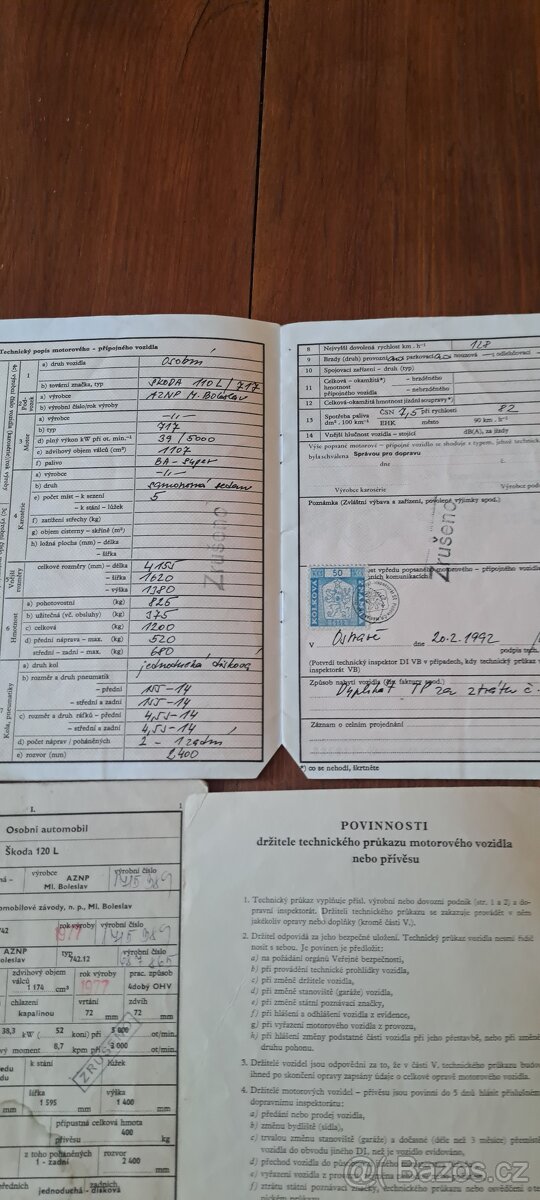 Technický popis motorového - přípojného vozidla
a) druh vozidla osobní
b) tovární značka, typ ŠKODA 110 L / 717
a) výrobce AZNP M. Boleslav
b) výrobní číslo/rok výroby
Motor
a) výrobce -11-
b) typ 717
d) plný výkon kW při ot. min.⁻¹ 39 / 5000
e) zdvihový objem válců (cm³) 1107
f) palivo BA - Super
Karosérie
a) výrobce -11-
b) druh samonosná sedan
e) počet míst - k sezení 5
- k stání - lůžek
f) zatížení střechy (kg)
g) objem cisterny - skříně (m³)
h) ložná plocha (mm) - délka
- šířka
Vnější rozměry
celkové rozměry (mm) - délka 4155
- šířka 1620
- výška 1380
Hmotnost
a) pohotovostní (kg) 825
b) užitečná (vč. obsluhy) (kg) 375
c) celková (kg) 1200
d) přední náprava - max. (kg) 520
střední - zadní - max. (kg) 680
Kola, pneumatiky
a) druh kol jednoduchá disková
b) rozměr a druh pneumatik
- přední 155-14
- střední a zadní 155-14
c) rozměr a druh ráfků - přední 4,5J-14
- střední a zadní 4,5J-14
d) počet náprav / poháněných 2 - 1 zadní
e) rozvor (mm) 2400
Zrušeno
8 Nejvyšší dovolená rychlost km . h⁻¹ 128
9 Brzdy (druh) provozní parkovací nouzová odlehčovací
10 Spojovací zařízení - druh (typ)
11 Celková - okamžitá*) hmotnost přípojného vozidla - brzděného
- nebrzděného
12 Celková-okamžitá hmotnost jízdní soupravy*)
13 Spotřeba paliva dm³ . 100 km⁻¹ ČSN 7,5 při rychlosti 82
EHK město 90 km . h⁻¹
14 Vnější hlučnost vozidla - stojící dB(A), za jízdy
Výše popsané motorové - přípojné vozidlo se shoduje s typem, jehož technická
byla schválena Správou pro dopravu
dne
Výrobce karosérie Výrobce
Poznámka (Zvláštní výbava a zařízení, povolené výjimky apod.)
Zrušeno
KOLKOVÁ 50 ZNÁMKA
ost vpředu popsaného motorového - přípojného vozidla
V Ostravě dne 20.2.1992
podpis
(Potvrdí technický inspektor DI VB v případech, kdy technický průkaz
inspektorát VB)
Způsob nabytí vozidla (dle faktury apod.)
Duplikát TP za ztrátu č.
Záznam o celním projednání
*) co se nehodí, škrtněte
I.
1
Osobní automobil
Škoda 120 L
výrobce AZNP Ml. Boleslav
výrobní číslo
omobilové závody, n. p., Ml. Boleslav
742
rok výroby 1977
výrobní číslo
AZNP
oleslav
typ 742.12
výrobní číslo
zdvihový objem válců 1 174 cm³
rok výroby 1977
prac. způsob 4dobý OHV
chlazení kapalinou
vrtání 72 mm
zdvih 72 mm
38,3 kW ( 52 koní) při 5 000 ot/min.
vý moment 8,7 kpm při 3 000 ot/min.
k stání
lůžek
ZRUŠENO
šířka 1 595 mm
výška 1 400 mm
přípustná celková hmota
přívěsu 400 kg
z toho poháněných 1 - zadní
rozvor 2 400 mm
středních
zadních
jednoduchá - disková
POVINNOSTI
držitele technického průkazu motorového vozidla
nebo přívěsu
1. Technický průkaz vyplňuje přísl. výrobní nebo dovozní podnik (str. 1 a 2) a do-
pravní inspektorát. Držiteli technického průkazu se zakazuje provádět v něm
jakékoliv opravy nebo doplňky (kromě části V.).
2. Držitel odpovídá za jeho bezpečné uložení. Technický průkaz vozidla nesmí řidič
nosit s sebou. Je povinen je předložit:
a) na požádání orgánů Veřejné bezpečnosti,
b) při provádění technické prohlídky vozidla,
c) při změně držitele vozidla,
d) při změně stanoviště (garáže) vozidla,
e) při změně státní poznávací značky,
f) při hlášení a odhlášení vozidla z evidence,
g) při vyřazení motorového vozidla z provozu,
h) při změně podstatné části vozidla při jeho přestavbě, nebo při změně
druhu pohonu.
3. Držitelé vozidel jsou odpovědni za to, že v části V. technického průkazu budou
ihned po skončení opravy zapsány údaje o celkové opravě motorového vozidla.
4. Držitelé motorových vozidel - přívěsu jsou povinni do 5 dnů hlásit příslušnému
dopravnímu inspektorátu:
a) předání nebo prodej vozidla,
b) změnu bydliště (sídla),
c) trvalou změnu stanoviště (garáže) a dočasné (déle než 3 měsíce) přemístění
vozidla do obvodu jiného DI, než je vozidlo evidováno,
d) přechod vozidla do
e) vyřazení vozidla z
f) ztrátu státní poznávací značky, technického průkazu nebo osvědčení o te-
nickém průkazu
Bazos.cz